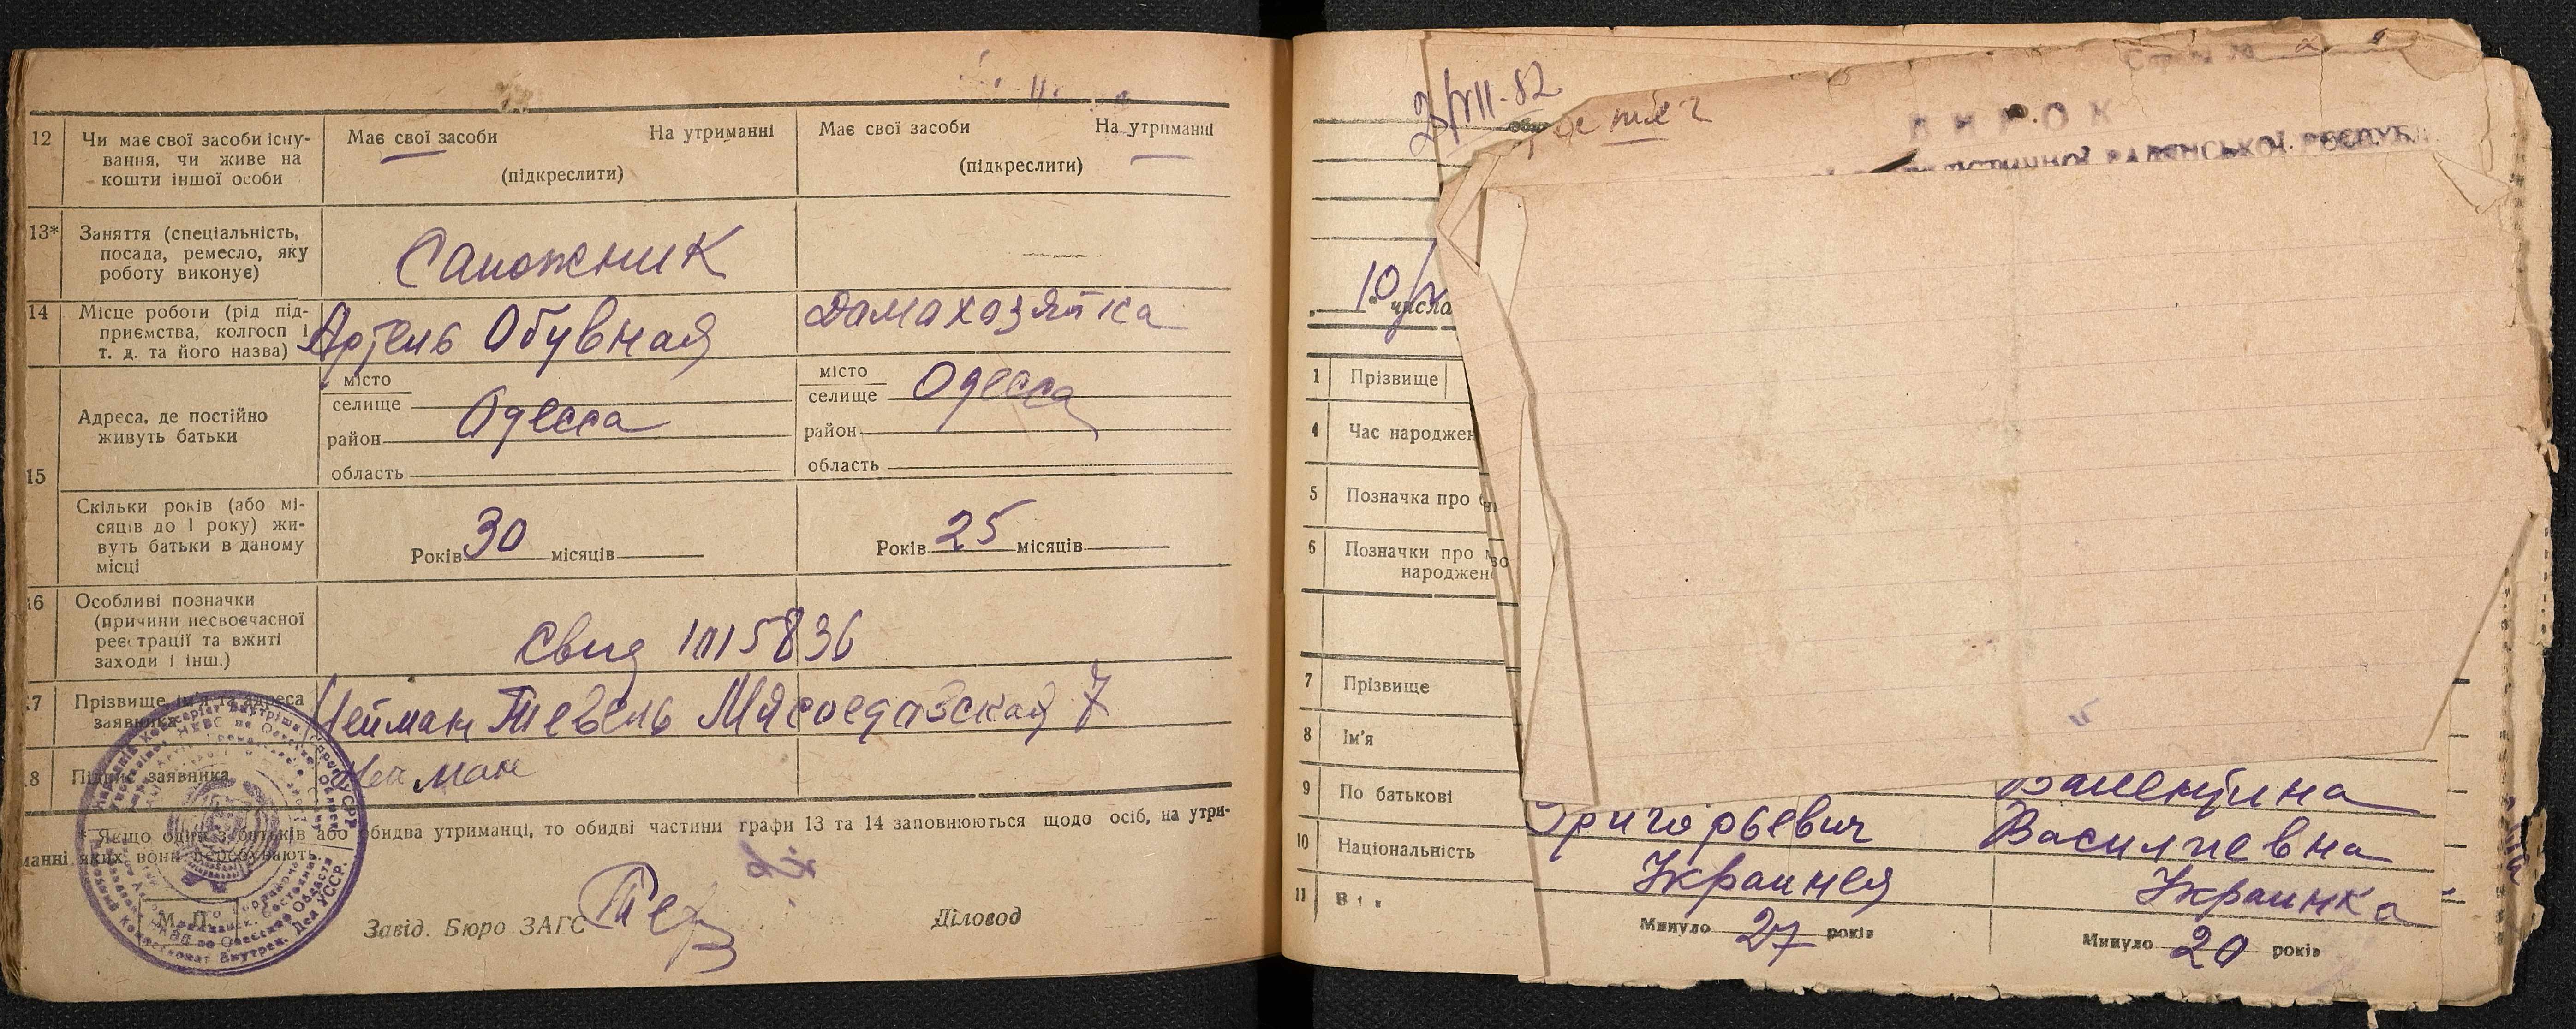 12 Чи має свої засоби існу-
вання, чи живе на
кошти іншої особи
Має свої засоби На утриманні
(підкреслити)
Має свої засоби На утриманні
(підкреслити)
13* Заняття (спеціальність,
посада, ремесло, яку
роботу виконує)
Сапожник
14 Місце роботи (рід під-
приємства, колгосп і
т. д. та його назва)
Артель Обувная
Дамахазяйка
15 Адреса, де постійно
живуть батьки
місто
селище
Одесса
район
область
місто
селище Одесса
район
область
Скільки років (або мі-
сяців до 1 року) жи-
вуть батьки в даному
місці
Років 30 місяців
Років 25 місяців
16 Особливі позначки
(причини несвоєчасної
реєстрації та вжиті
заходи і інш.)
Свид
17 Прізвище, ім'я та адреса
заявника
Нейман Тевель Мясоедовская 7
18 Підпис заявника
* Якщо один з батьків або обидва утриманці, то обидві частини графи 13 та 14 заповнюються щодо осіб, на утри-
манні яких вони перебувають.
М. П.
Завід. Бюро ЗАГС
Діловод
2/VII-82
ВИРОК
РАДЯНСЬКОЇ РЕСПУБ
10
числа
1 Прізвище
4 Час народжен
5 Позначка про
6 Позначки про
народжен
7 Прізвище
8 Ім'я
Валентина
9 По батькові
Григорьевич
Василиевна
10 Національність
Украинец
Украинка
11 Вік
Минуло 27 років
Минуло 20 років